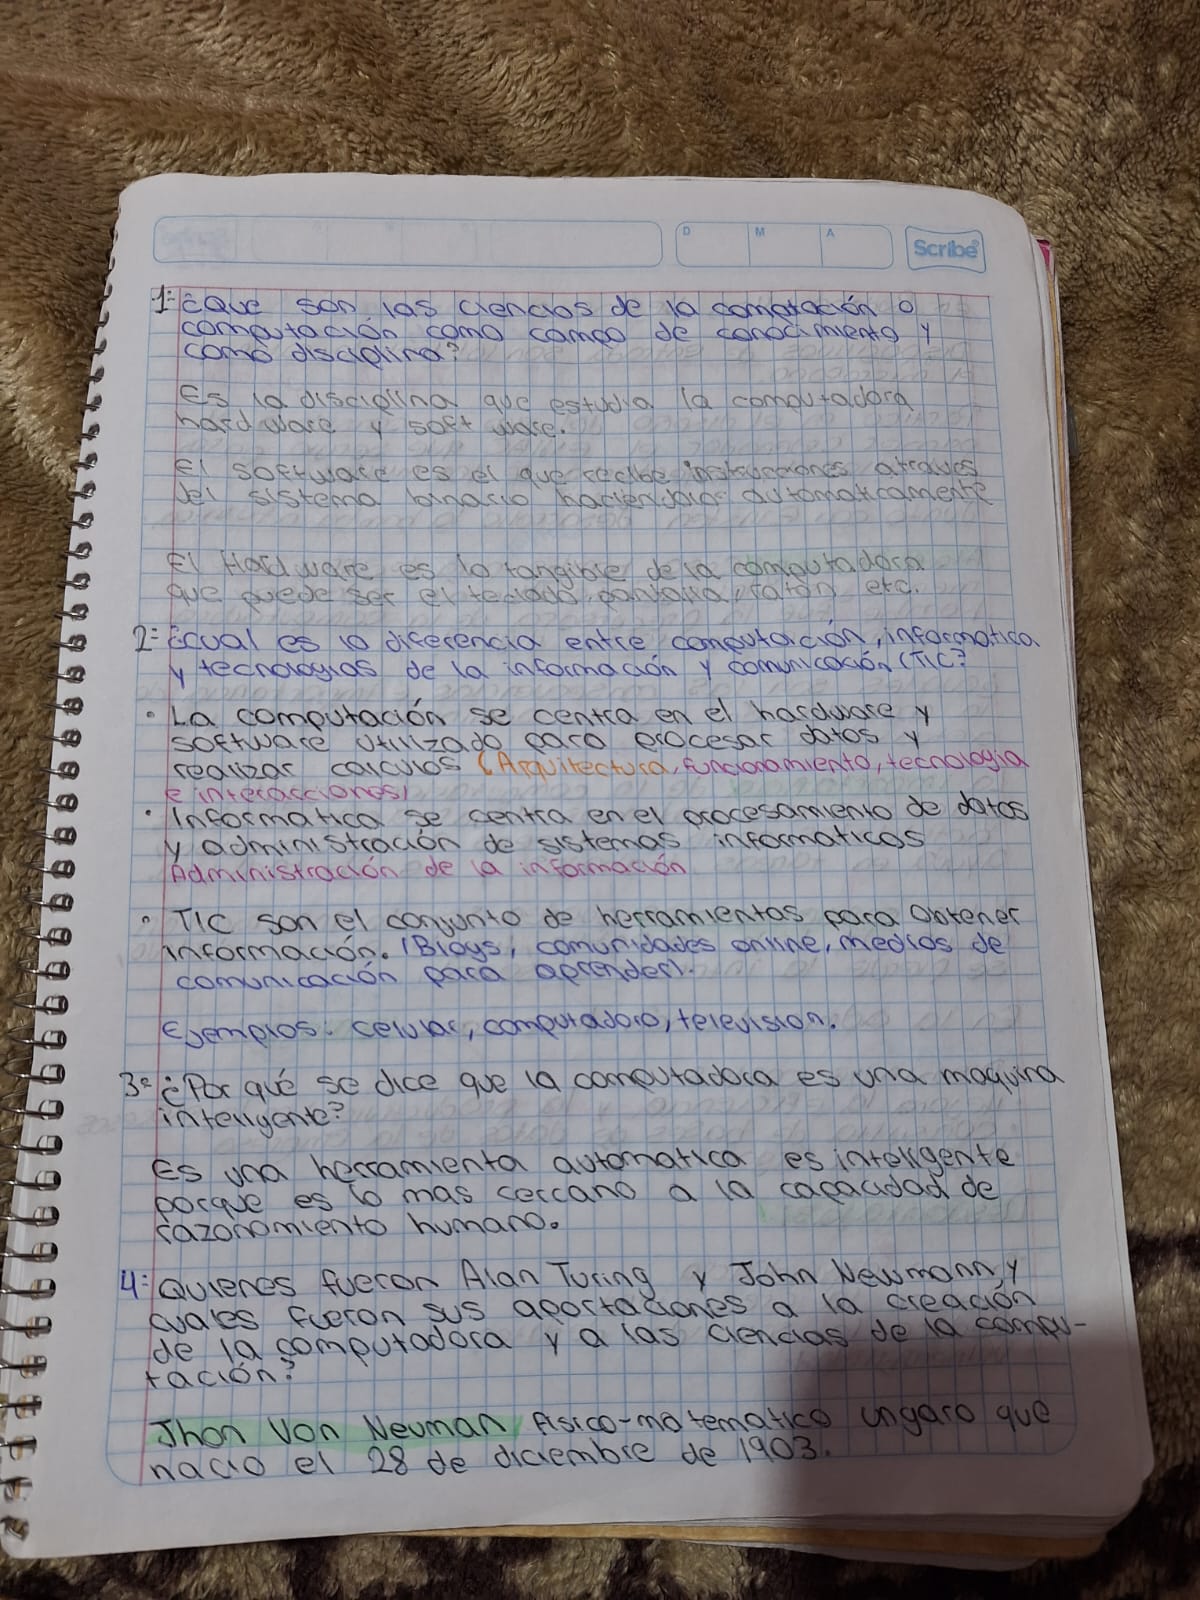 D M A
Scribe
1= ¿Que son las ciencias de la comptación o
computación como campo de conocimiento y
como disciplina?
Es la disciplina que estudia la computadora,
hard ware y soft ware.
El software es el que recibe instrucciones atraves
del sistema binario haciendolas automaticamente
El Hard ware es lo tangible de la computadora
que puede ser el teclado, pantalla, raton, etc.
2= ¿cual es la diferencia entre computación, informatica
y tecnologias de la información y comunicación (TIC?
• La computación se centra en el hardware y
software utilizado para procesar datos y
realizar calculos (Arquitectura, funcionamiento, tecnologia
e interacciones)
• Informatica se centra en el procesamiento de datos
y administración de sistemas informaticos
Administración de la información
• TIC son el conjunto de herramientas para obtener
información. (Blogs, comunidades online, medios de
comunicación para aprender).
Ejemplos: celular, computadora, television.
3= ¿Por qué se dice que la computadora es una maquina
inteligente?
Es una herramienta automatica es inteligente
porque es lo mas cercano a la capacidad de
razonamiento humano.
4= Quienes fueron Alan Turing y John Newmann y
cuales fueron sus aportaciones a la creación
de la computadora y a las ciencias de la compu-
tación?
Jhon Von Neuman, fisico-matematico ungaro que
nacio el 28 de diciembre de 1903.